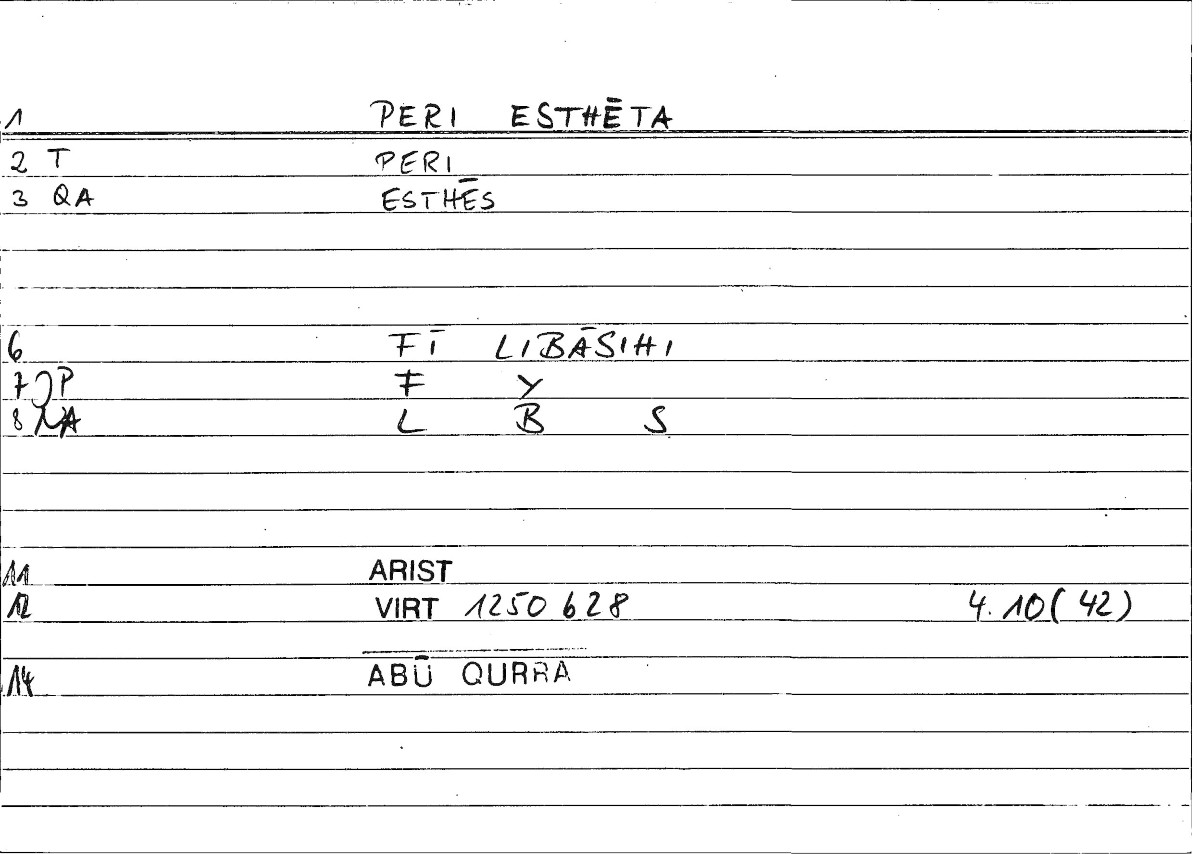 1 PERI ESTHĒTA
2 T PERI
3 QA ESTHĒS
6 FĪ LIBĀSIHI
7 P F Y
8 NA L B S
11 ARIST
12 VIRT 1250 628 4.10(42)
14 ABŪ QURRA